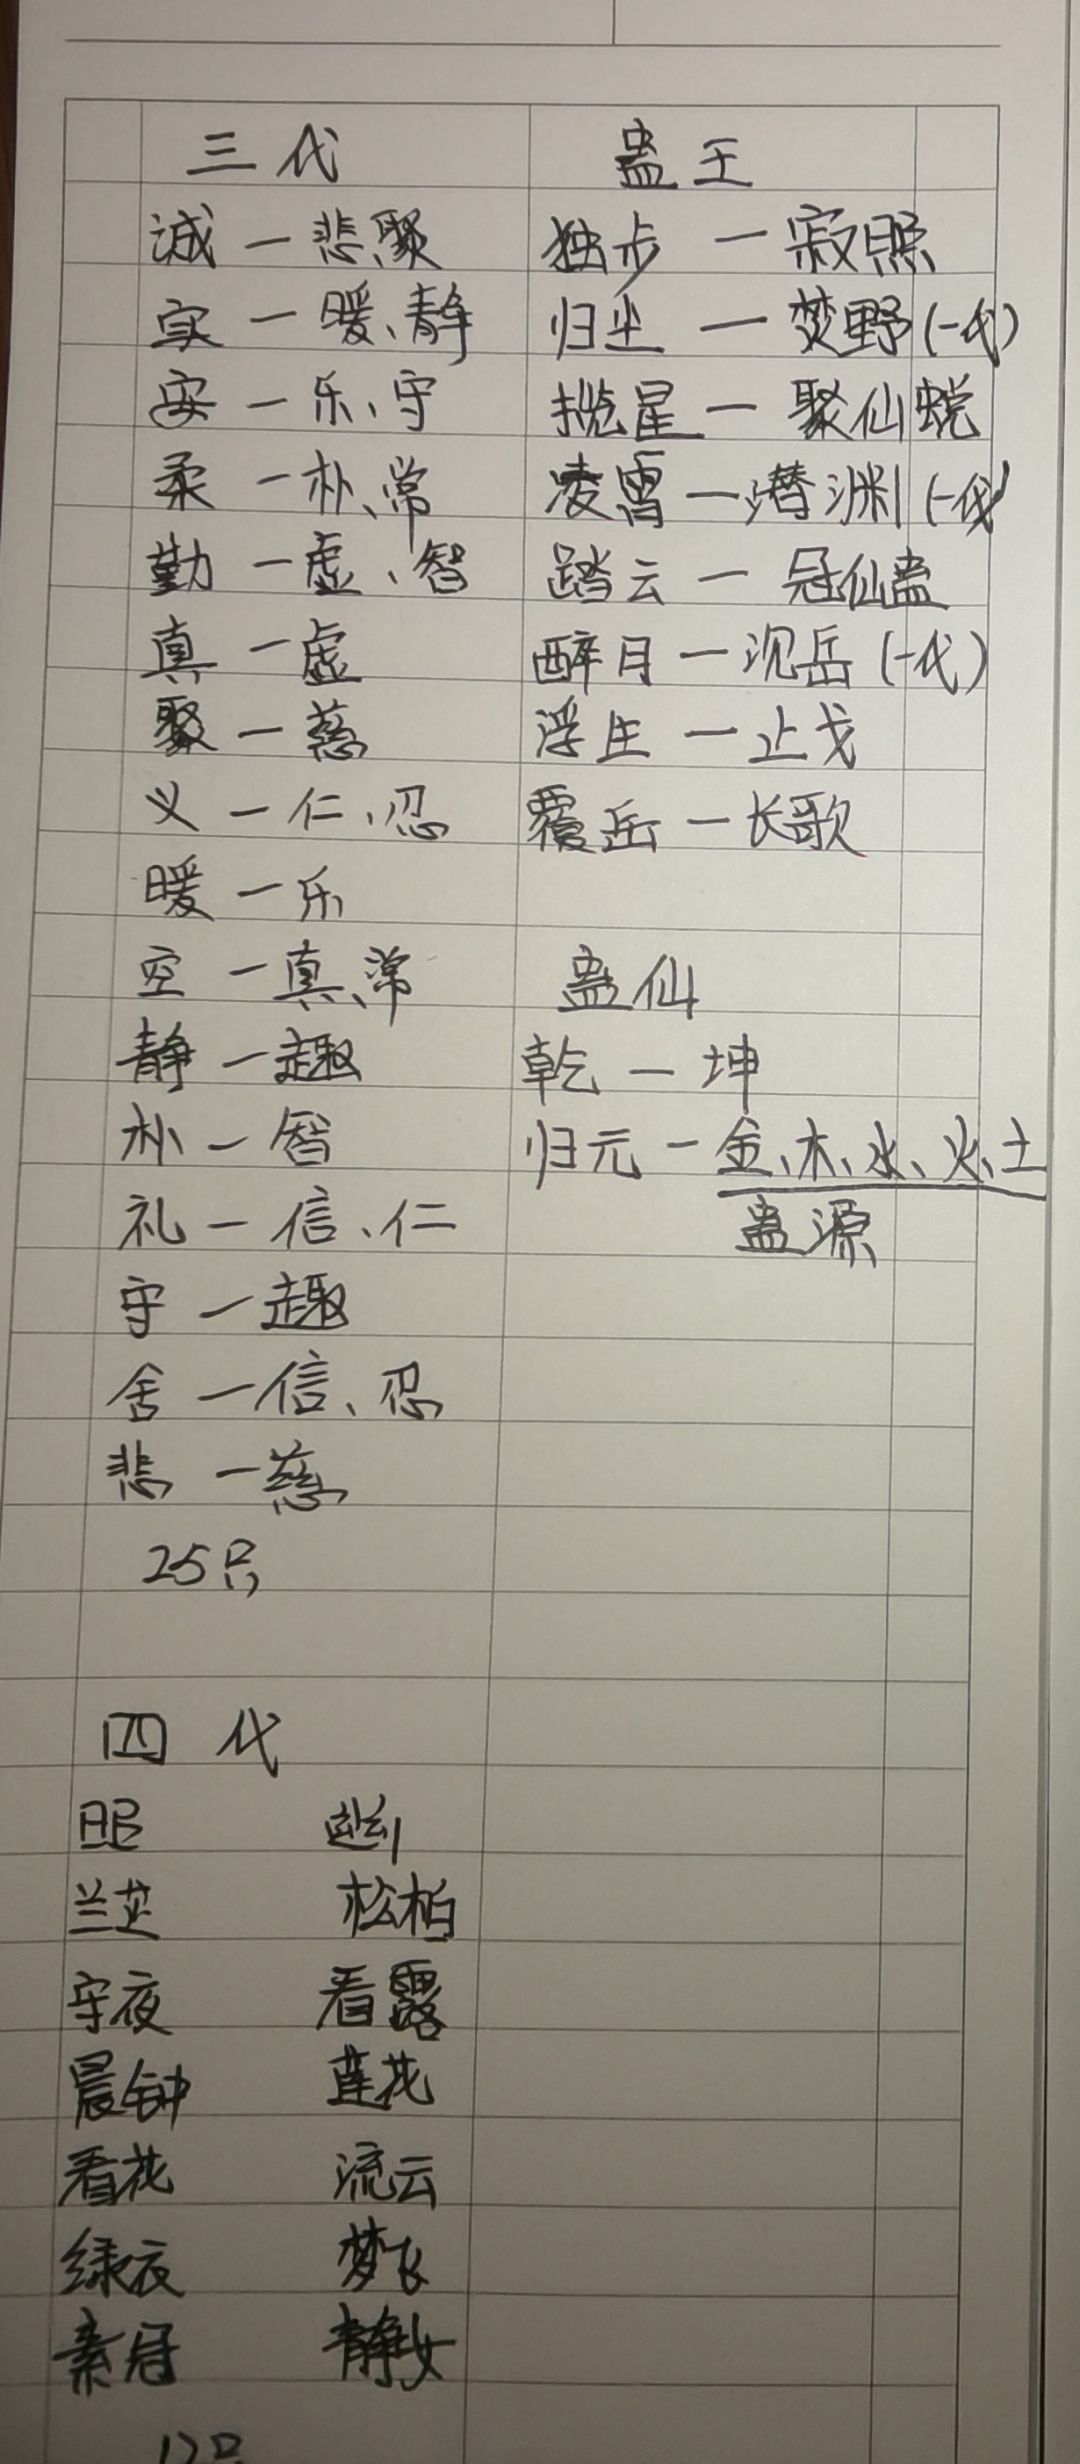 三代
诚一悲、聚
实一暖、静
安一乐、守
柔一朴、常
勤一虚、智
真一虚
聚一慈
义一仁、忍
暖一乐
空一真、常
静一趣
朴一智
礼一信、仁
守一趣
舍一信、忍
悲一慈
25只
四代
昭
兰芷 松柏
守夜 看露
晨钟 莲花
看花 流云
绿衣 梦飞
素冠 静女
12只
蛊王
独步一寂照
归尘一焚野(一代)
揽星一聚仙蜕
凌霄一潜渊(一代)
踏云一冠仙蛊
醉月一沉岳(一代)
浮生一止戈
覆岳一长歌
蛊仙
乾一坤
归元一金、木、水、火、土
蛊源